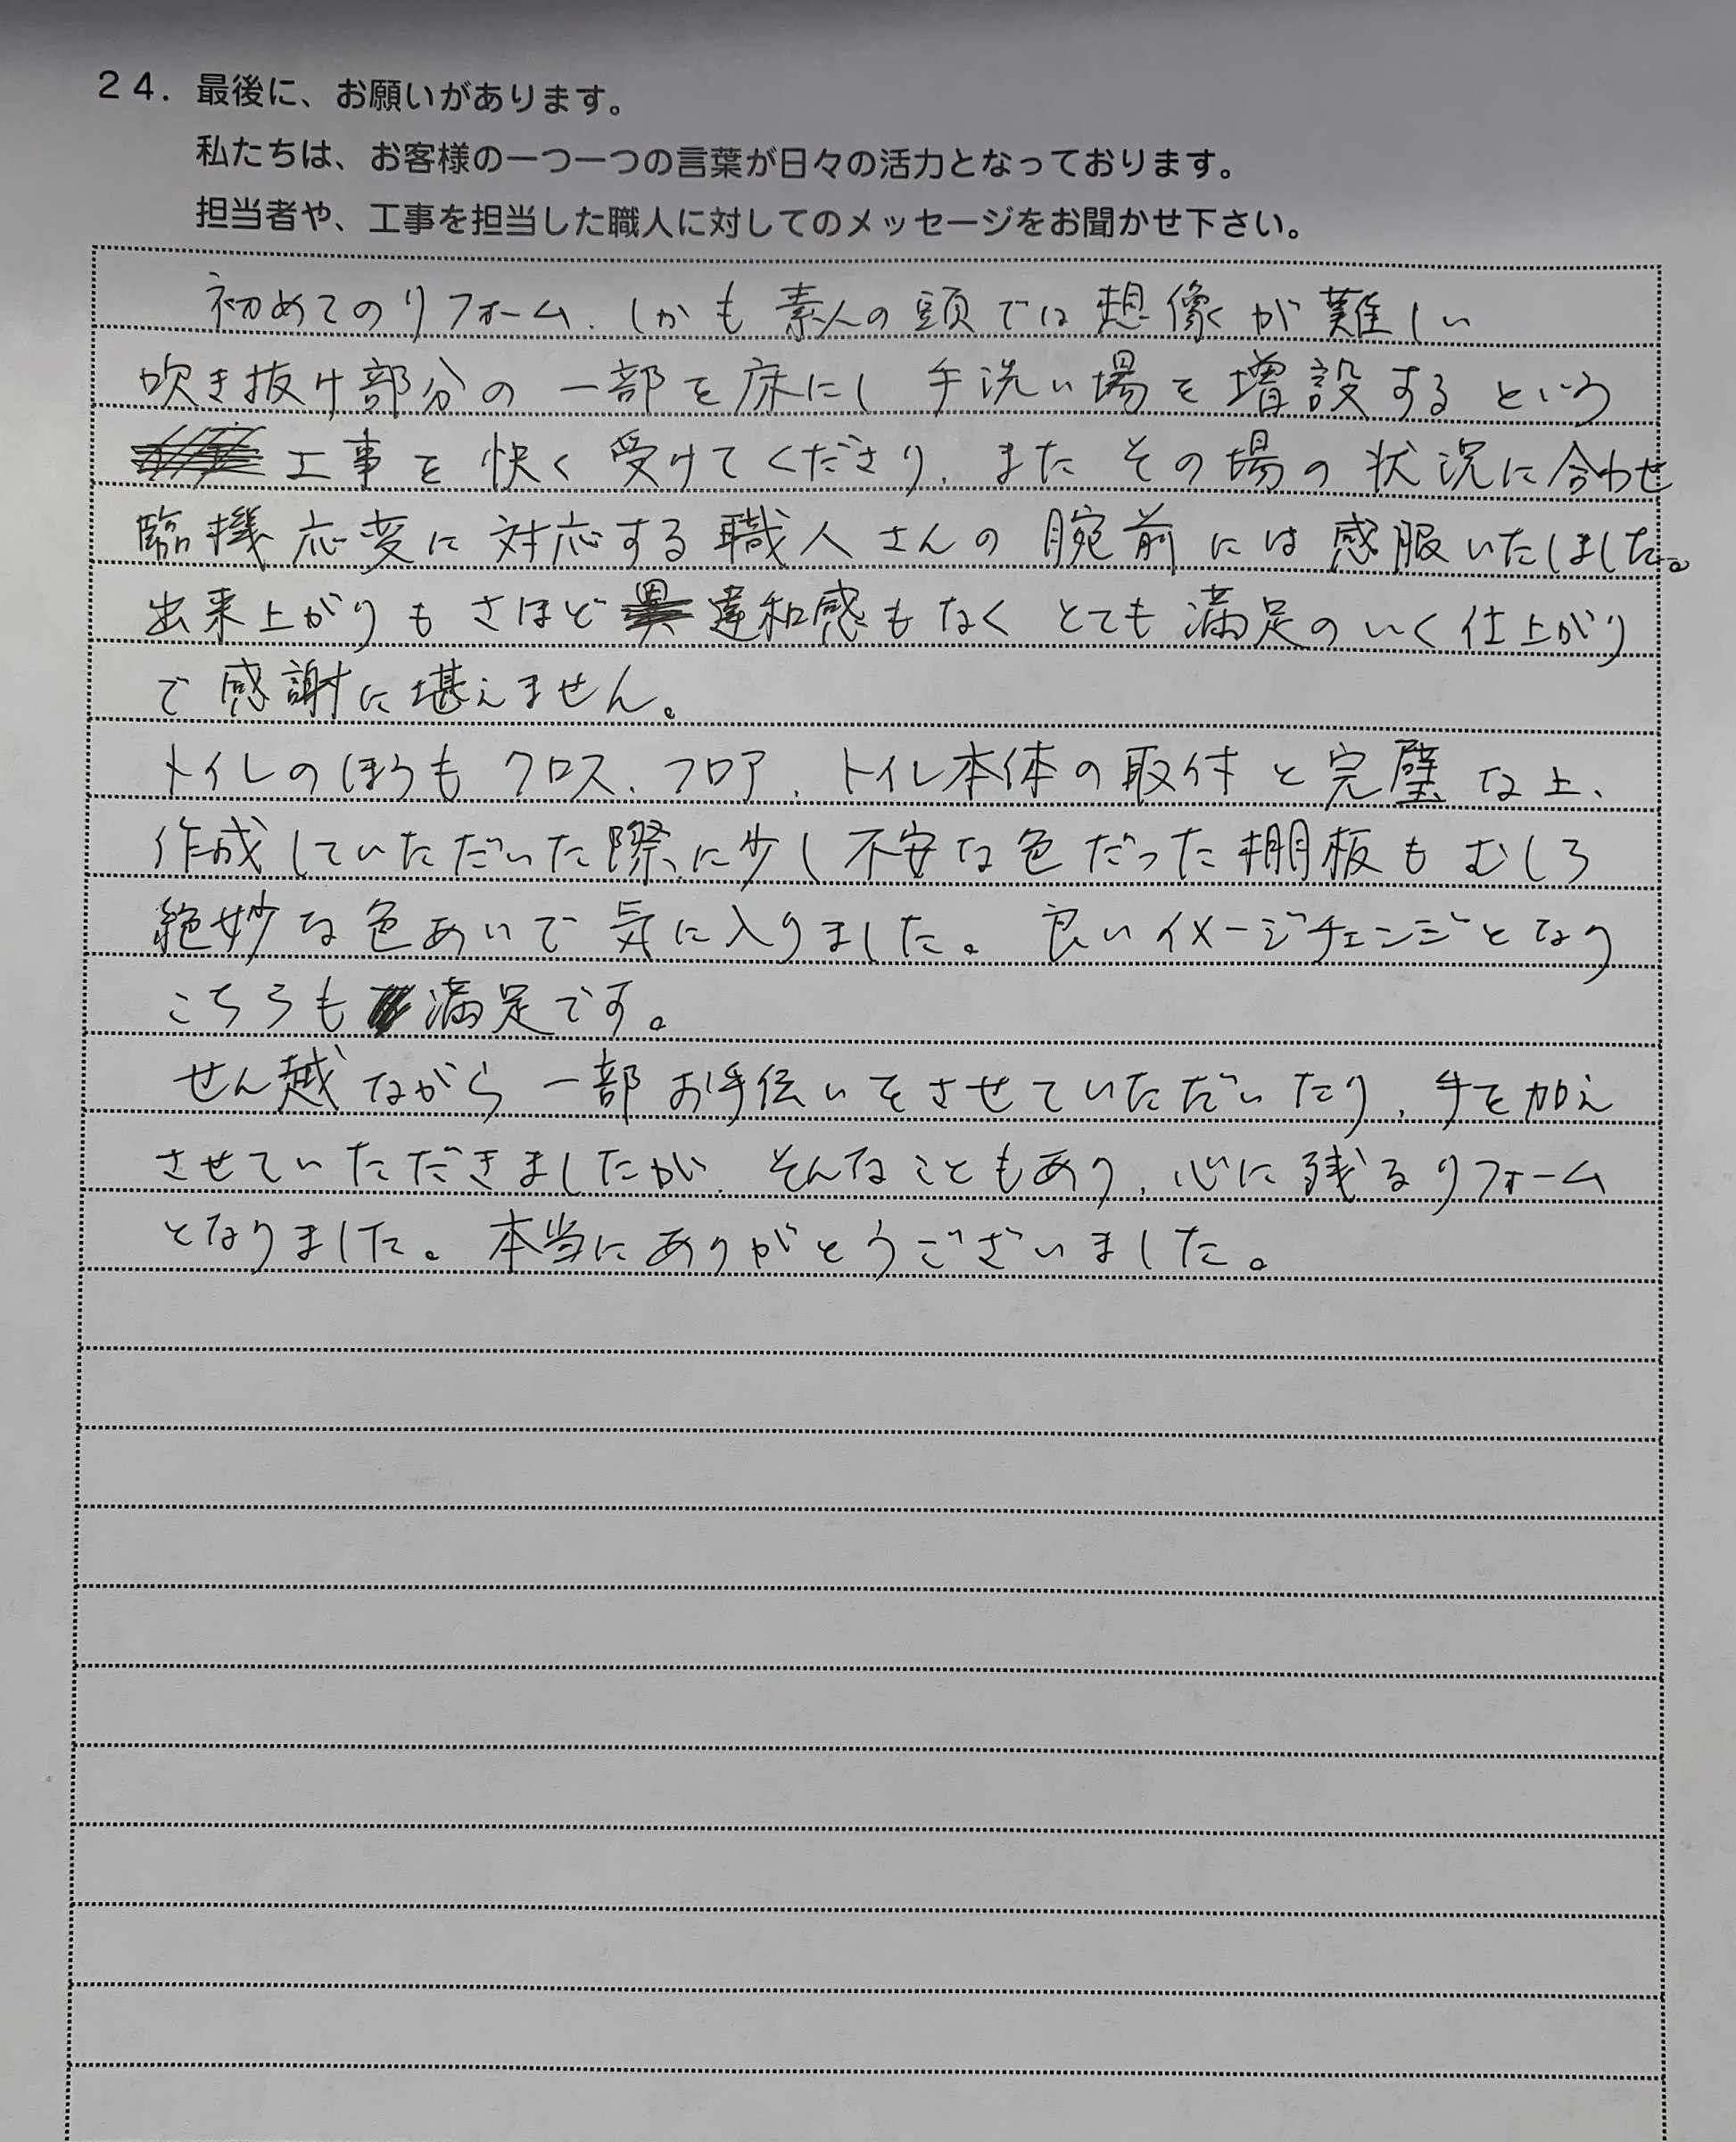 ２４．最後に、お願いがあります。
私たちは、お客様の一つ一つの言葉が日々の活力となっております。
担当者や、工事を担当した職人に対してのメッセージをお聞かせ下さい。
初めてのリフォーム、しかも素人の頭では想像が難しい
吹き抜け部分の一部を床にし手洗い場を増設するという
工事を快く受けてくださり、またその場の状況に合わせ
臨機応変に対応する職人さんの腕前には感服いたしました。
出来上がりもさほど違和感もなくとても満足のいく仕上がり
で感謝に堪えません。
トイレのほうもクロス、フロア、トイレ本体の取付と完璧な上、
作成していただいた際に少し不安な色だった棚板もむしろ
絶妙な色あいで気に入りました。良いイメージチェンジとなり
こちらも満足です。
せん越ながら一部お手伝いをさせていただいたり、手を加え
させていただきましたが、そんなこともあり、心に残るリフォーム
となりました。本当にありがとうございました。